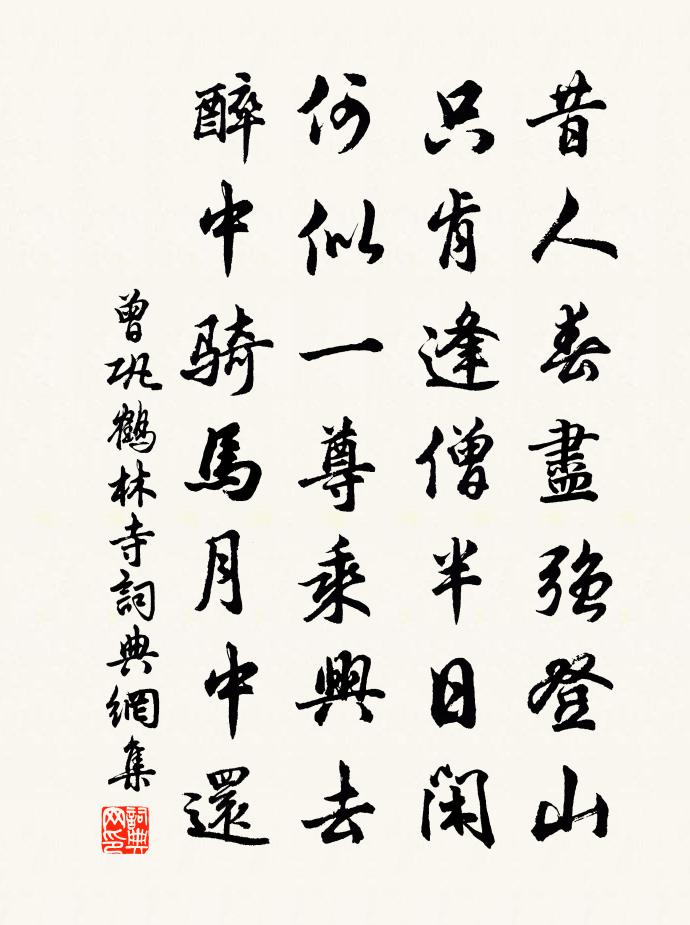 昔人春盡強登山
只肯逢僧半日閑
何似一尊乘興去
醉中騎馬月中還
曾巩鶴林寺詞典網集
詞典网印